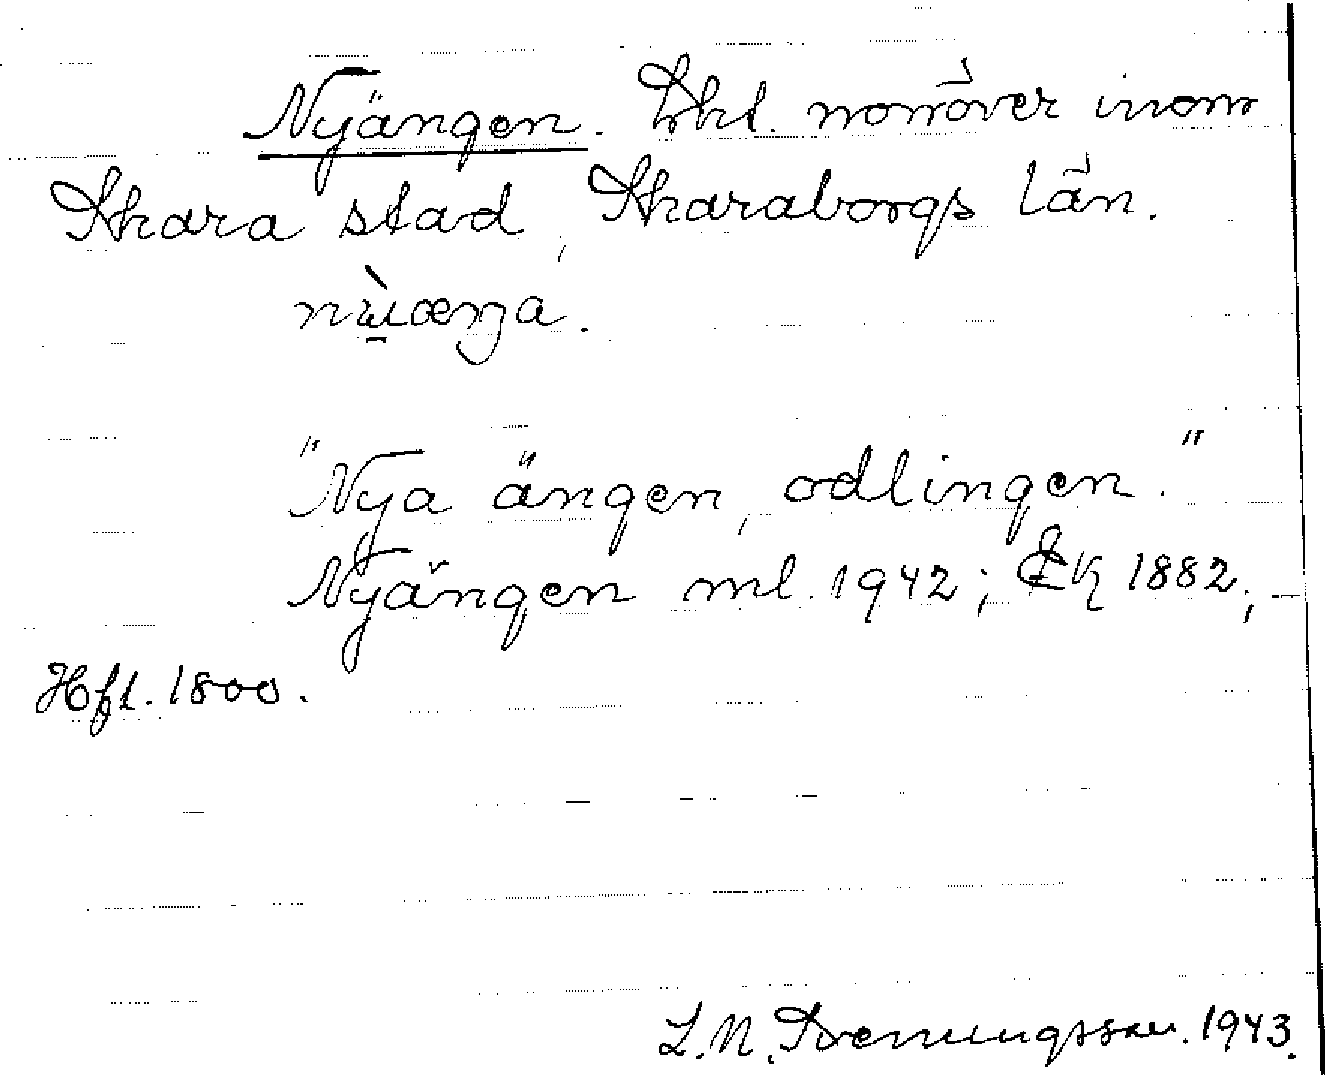 Nyängen. Trkt. norröver inom
Skara stad, Skaraborgs län.
"Nya ängen, odlingen."
Nyängen ml. 1942; EK 1882;
Hfl. 1800.
L.N. Svenungsson. 1943.